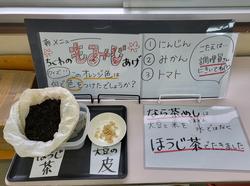 新メニュー
ちくわのもみじあげ
クイズ!!このオレンジ色は
何で色をつけたでしょうか?
① にんじん
② みかん
③ トマト
こたえは…
調理員さん
にきいてね!
なら茶めしは
大豆と米を 水ではなく
ほうじ茶でたきました
ほうじ茶
大豆の
皮